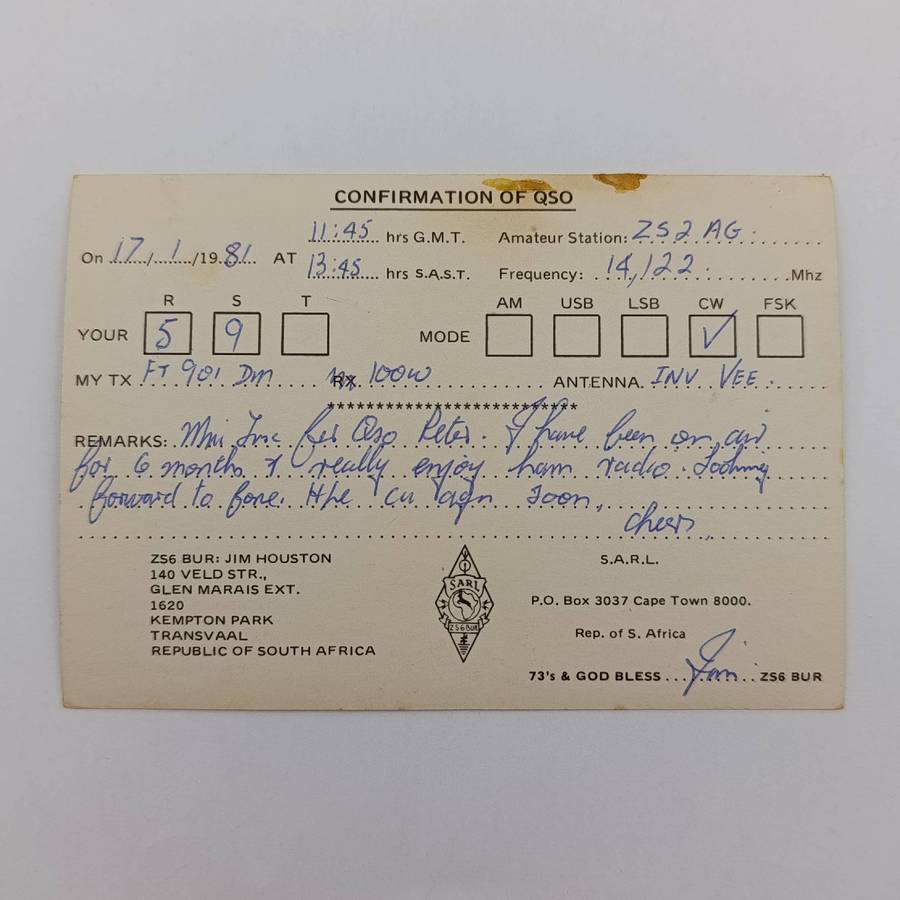 CONFIRMATION OF QSO
On 17/1/1981 AT 11:45 hrs G.M.T. Amateur Station: ZS2AG
13:45 hrs S.A.S.T. Frequency: 14,122 Mhz
R S T AM USB LSB CW FSK
YOUR 5 9 MODE ✓
MY TX FT 901 DM 100W ANTENNA INV VEE.
**************************
REMARKS: Mni Tnx fer Qso Peter. I have been on air
for 6 months & really enjoy ham radio. Looking
forward to fone. Hpe cu agn soon.
cheers
ZS6 BUR: JIM HOUSTON
140 VELD STR.,
GLEN MARAIS EXT.
1620
KEMPTON PARK
TRANSVAAL
REPUBLIC OF SOUTH AFRICA
SARL
ZS6BUR
S.A.R.L.
P.O. Box 3037 Cape Town 8000.
Rep. of S. Africa
73's & GOD BLESS ... Jim ... ZS6 BUR